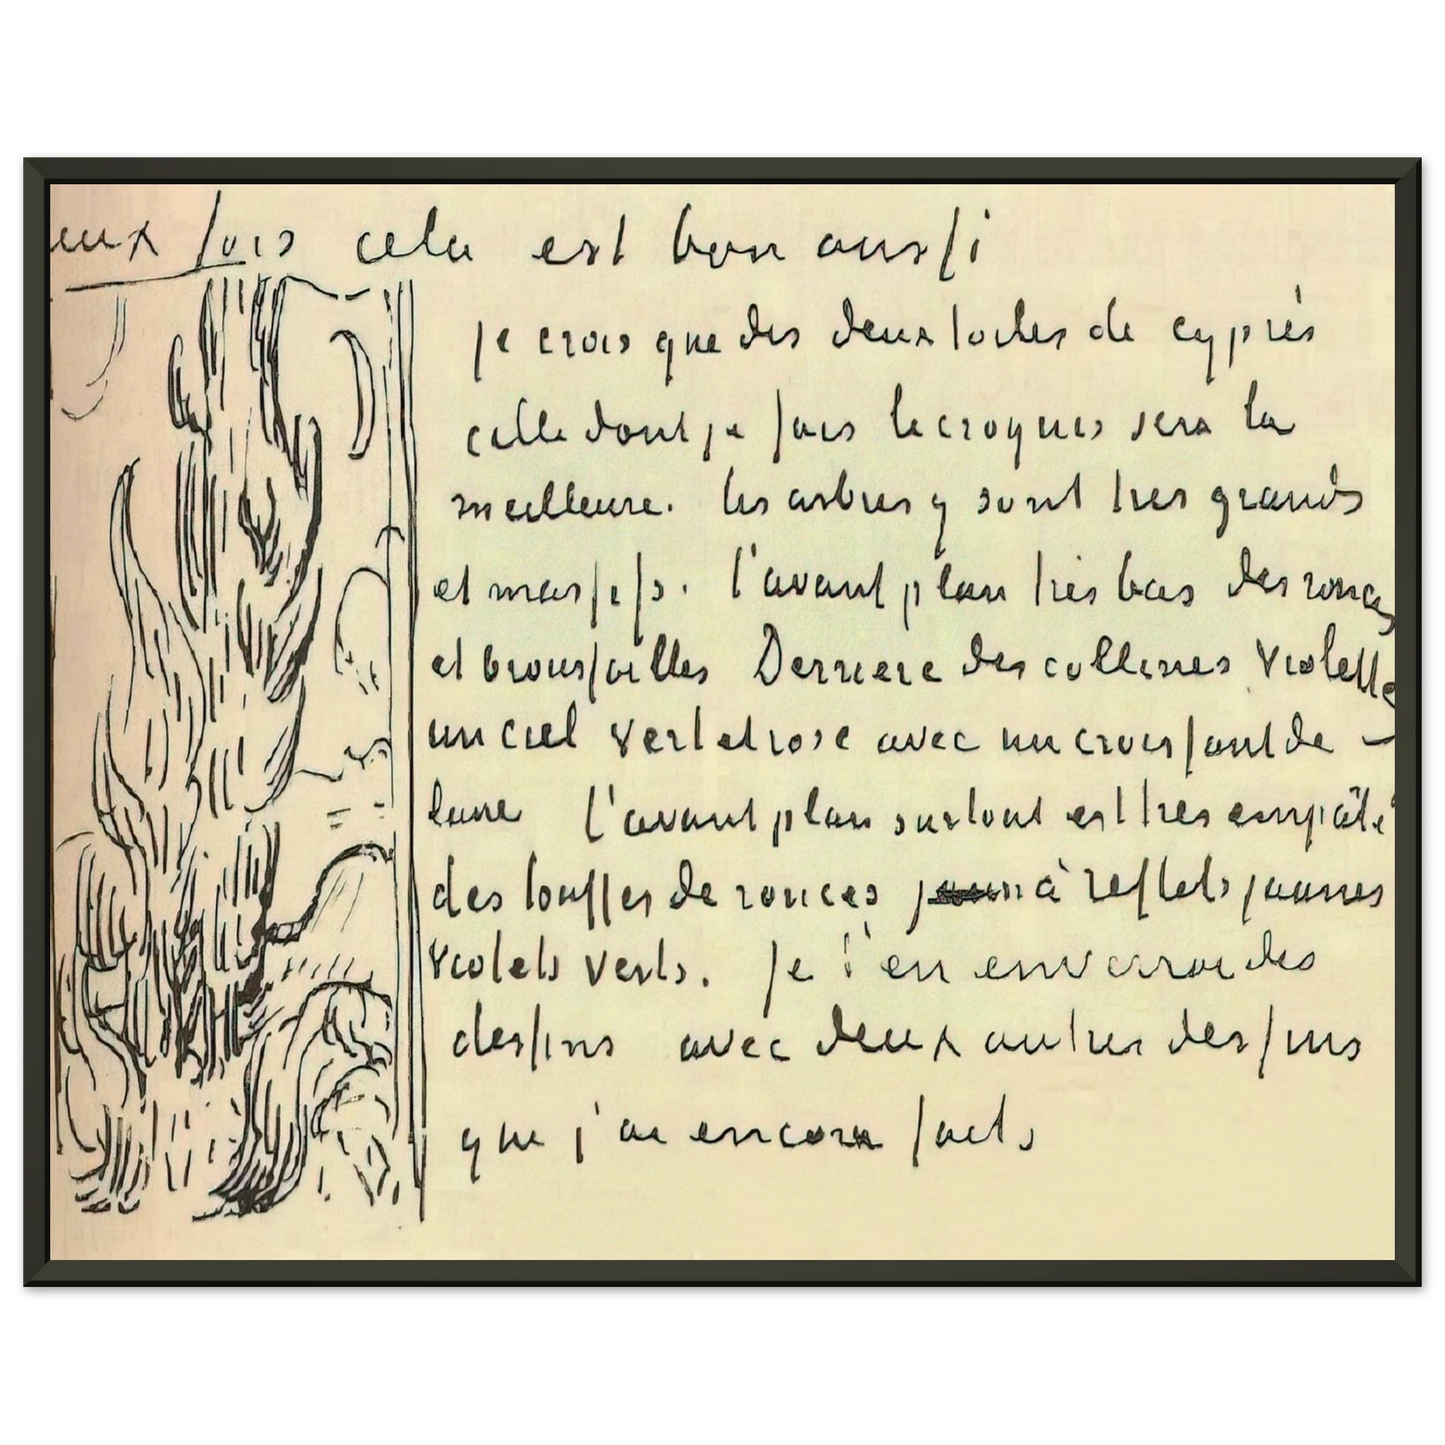 eux fois cela est bon aussi
je crois que des deux toiles de cyprès
celle dont je fais le croquis sera la
meilleure. les arbres y sont très grands
et massifs. l'avant plan très bas des ronces
et broussailles Derrière des collines violettes
un ciel vert et rose avec un croissant de
lune l'avant plan surtout est très empâté
des touffes de ronces à reflets jaunes
violets verts. Je t'en enverrai des
dessins avec deux autres dessins
que j'ai encore faits